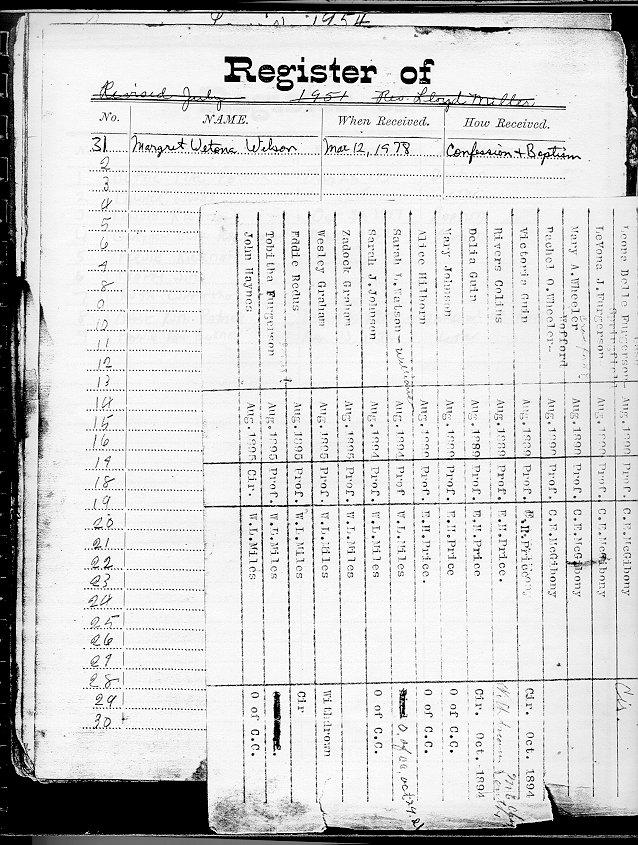 1954
Register of
Revised July 1951 Rev. Lloyd Miller
No. NAME. When Received. How Received.
31 Margret Vetona Wilson Mar 12, 1978 Confession & Baptism
2
3
4
5
6
7
8
9
10
11
12
13
14
15
16
17
18
19
20
21
22
23
24
25
26
27
28
29
30
Leona Belle Furgerson- Aug. Prof. C.E.McGibony Cir.
LeVona J.Furgerson Aug. Prof. C.E.McGibony
Mary A.Wheeler Aug. Prof. C.E.McGibony
Wofford
Rachel O.Wheeler- Aug. Prof. C.E.McGibony
Victoria Guin Aug. Prof. Cir. Oct. 1894
Rivers Colins Aug. Prof. E.H.Price.
Delia Guin Aug.1889 Prof. E.H.Price Cir. Oct. 1894
Mary Johnson Aug.1889 Prof. E.H.Price O of C.C.
Alice Hilborn Aug. Prof. E.H.Price. O of C.C.
Sarah L.Watson- Aug.1894 Prof W.L.Miles
Sarah J.Johnson Aug.1894 Prof. W.L.Miles O of C.C.
Zadock Graham Aug.1895 Prof. W.L.Miles
Wesley Graham Aug.1895 Prof. W.L.Miles Withdrown
Eddie Redus Aug.1895 Prof. W.L.Miles Cir
Tobitha Furgerson Aug.1895 Prof. W.L.Miles
John Haynes Aug.1895 Cir. W.L.Miles O of C.C.